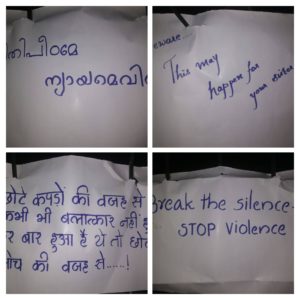 തിപീഠമേ
ന്യായമെവി
eware...
This may
happen for
your sister
छोटे कपडों की वजह से
कभी भी बलात्कार नहीं
र बार हुआ है ये तो छोट
सोच की वजह से.....!
Break the silence
STOP violence